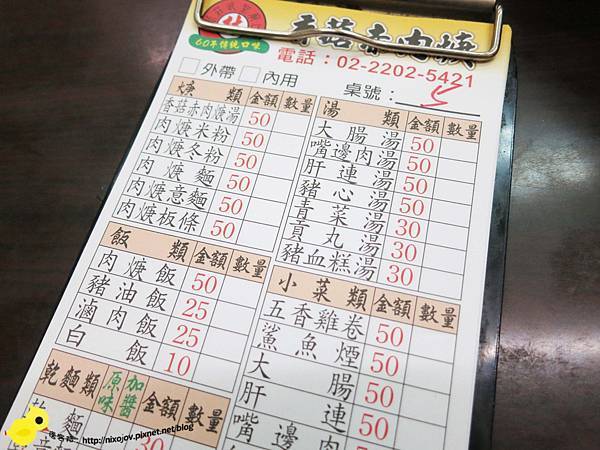 香菇赤肉焿
60年傳統口味
電話：02-2202-5421
外帶 內用 桌號：5
焿類 金額 數量
香菇赤肉焿湯 50
肉焿米粉 50
肉焿冬粉 50
肉焿麵 50
肉焿意麵 50
肉焿板條 50
飯類 金額 數量
肉焿飯 50
豬油飯 25
滷肉飯 25
白飯 10
乾麵類 原味 加醬 金額 數量
乾麵
意麵 30
湯類 金額 數量
大腸湯 50
嘴邊肉湯 50
肝連湯 50
豬心湯 50
青菜湯 30
貢丸湯 30
豬血糕湯 30
小菜類 金額 數量
五香雞卷 50
鯊魚煙 50
大腸 50
肝連 50
嘴邊肉 50
http://nixojov.pixnet.net/blog